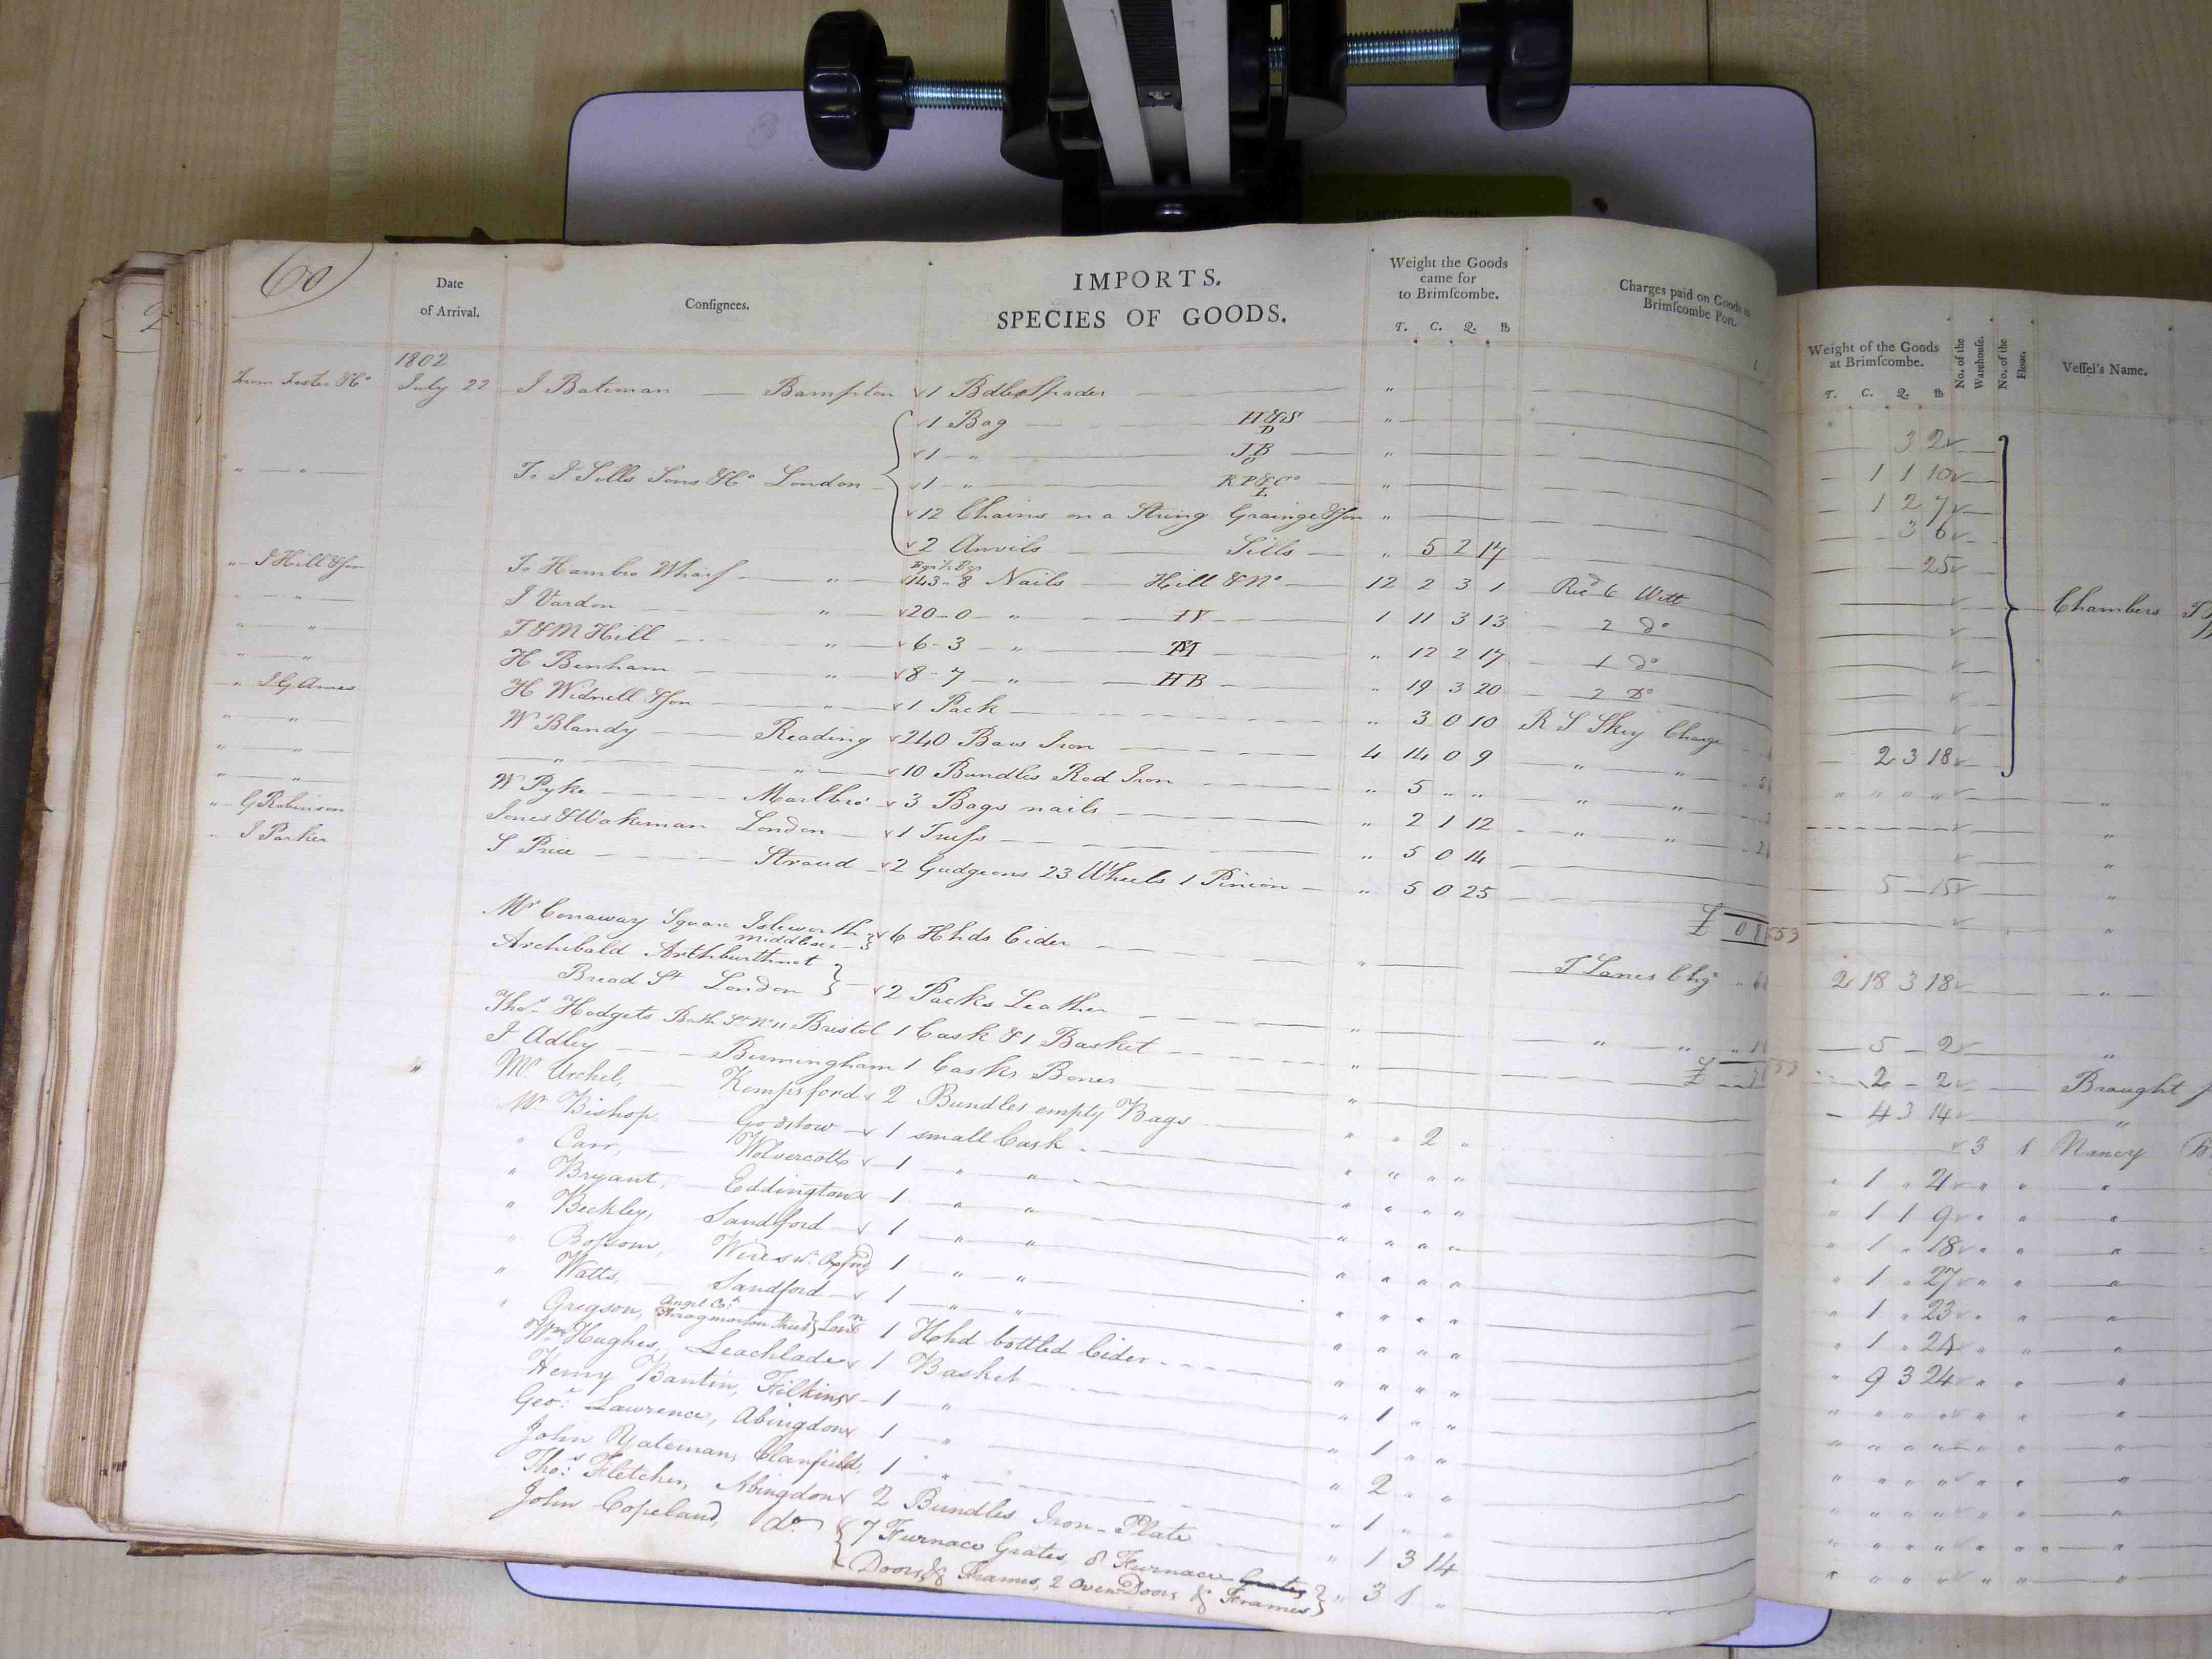 60
Date of Arrival.
Consignees.
IMPORTS.
SPECIES OF GOODS.
Weight the Goods came for to Brimſcombe.
T. C. Q. lb
Charges paid on Goods to Brimſcombe Port.
Weight of the Goods at Brimſcombe.
T. C. Q. lb
No. of the Warehouse.
No. of the Floor.
Veſſel's Name.
1802
From Foster &Co July 22 J Bateman — Bampton 1 Bdle Spades " 3 2
1 Bag H&S D " 1 1 10
1 " JB " 1 2 7
" " To J Sills Sons &Co London 1 " RP&Co L " 3 6
12 Chains on a String Grainge &Son " 25
2 Anvils Sills " 5 2 17
" J Hill &Son To Hambro Wharf " 143-8 Nails Hill &Co 12 2 3 1 Chambers
" " J Vardon " 20-0 " IV 1 11 3 13 2 do
" " T&M Hill " 6-3 " " 12 2 17 1 do
" " H Benham " 8-7 " HB " 19 3 20 2 Do
" J G Ames H Widnell &Son " 1 Pack " 3 0 10 R S Skey Charge 2 3 18
" " W Blandy Reading 240 Bars Iron 4 14 0 9 " "
" " " " 10 Bundles Rod Iron " 5 " " " "
" " W Pyke Marlbro' 3 Bags nails " 2 1 12 " "
" G Robinson Jones &Wakeman London 1 Truſs " 5 0 14 5 - 15
" J Parker S Price Stroud 2 Gudgeons 23 Wheels 1 Pinion " 5 0 25
£
Mr Conaway Square Isleworth Middlesex 6 Hhds Cider " T Lanes Chg 2 18 3 18 "
Archibald Arthburthnot
Bread St London 2 Packs Leather " " " 5 - 2 "
£
Thos Hodgets Bath St No 11 Bristol 1 Cask &1 Basket " 2 - 2 Brought
J Adley Birmingham 1 Casks Bones " 4 3 14 "
" Mr. Urchel, Kempsford 2 Bundles empty Bags " " 2 " 3 1 Nancy
Mr Bishop Godstow 1 small Cask " " " " 1 " 4 "
" Carr, Wolvercott 1 " " " " " " 1 1 9 "
" Bryant, Eddington 1 " " " " " " 1 " 18 "
" Beckley, Sandford 1 " " " " " " 1 " 27 "
" Boſsom, Oxford 1 " " " " " " 1 " 23 "
" Watts, Sandford 1 " " " " " " 1 " 24 "
" Gregson, Angel Cot Throgmorton Street Lonn 1 Hhd bottled Cider " " " " 9 3 24 "
Wm Hughes, Leachlade 1 Basket " 1 " "
Henry Bantin, Filkins 1 " " 1 " "
Geo: Lawrence, Abingdon 1 " " 2 " "
John Yateman, Clanfield, 1 " " 1 " "
Thos: Fletcher, Abingdon 2 Bundles Iron-Plate " 1 3 14
John Copeland, do. 7 Furnace Grates, 8 Furnace Grates " 3 1 "
Doors & Frames, 2 Oven Doors & Frames